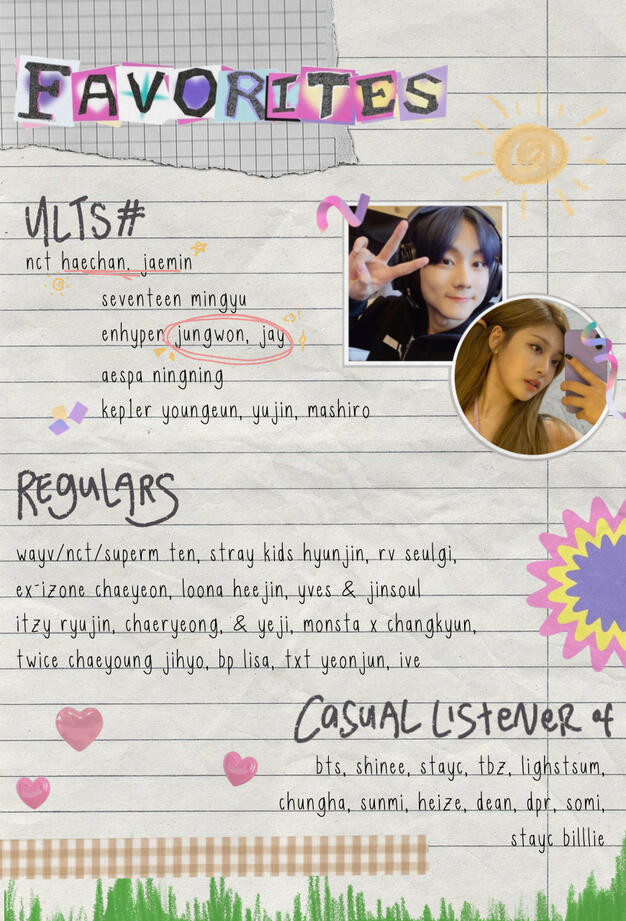 FAVORITES
ULTS#
nct haechan, jaemin
seventeen mingyu
enhypen jungwon, jay
aespa ningning
kep1er youngeun, yujin, mashiro
REgULARS
wayv/nct/superm ten, stray kids hyunjin, rv seulgi,
ex-izone chaeyeon, loona heejin, yves & jinsoul
itzy ryujin, chaeryeong, & yeji, monsta x changkyun,
twice chaeyoung jihyo, bp lisa, txt yeonjun, ive
CASUAL LIStENER of
bts, shinee, stayc, tbz, lighstsum,
chungha, sunmi, heize, dean, dpr, somi,
stayc billlie